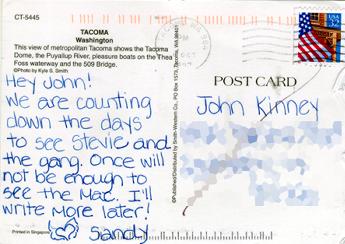 CT-5445
TACOMA
Washington
This view of metropolitan Tacoma shows the Tacoma
Dome, the Puyallup River, pleasure boats on the Thea
Foss waterway and the 509 Bridge.
©Photo by Kyle S. Smith
Hey John!
We are counting
down the days
to see Stevie and
the gang. Once will
not be enough to
see the Mac. I'll
write more later!
Sandy
Printed in Singapore
©Published/Distributed by Smith-Western Co., PO Box 1573, Tacoma, WA 98401
USA
32
POST CARD
John Kinney